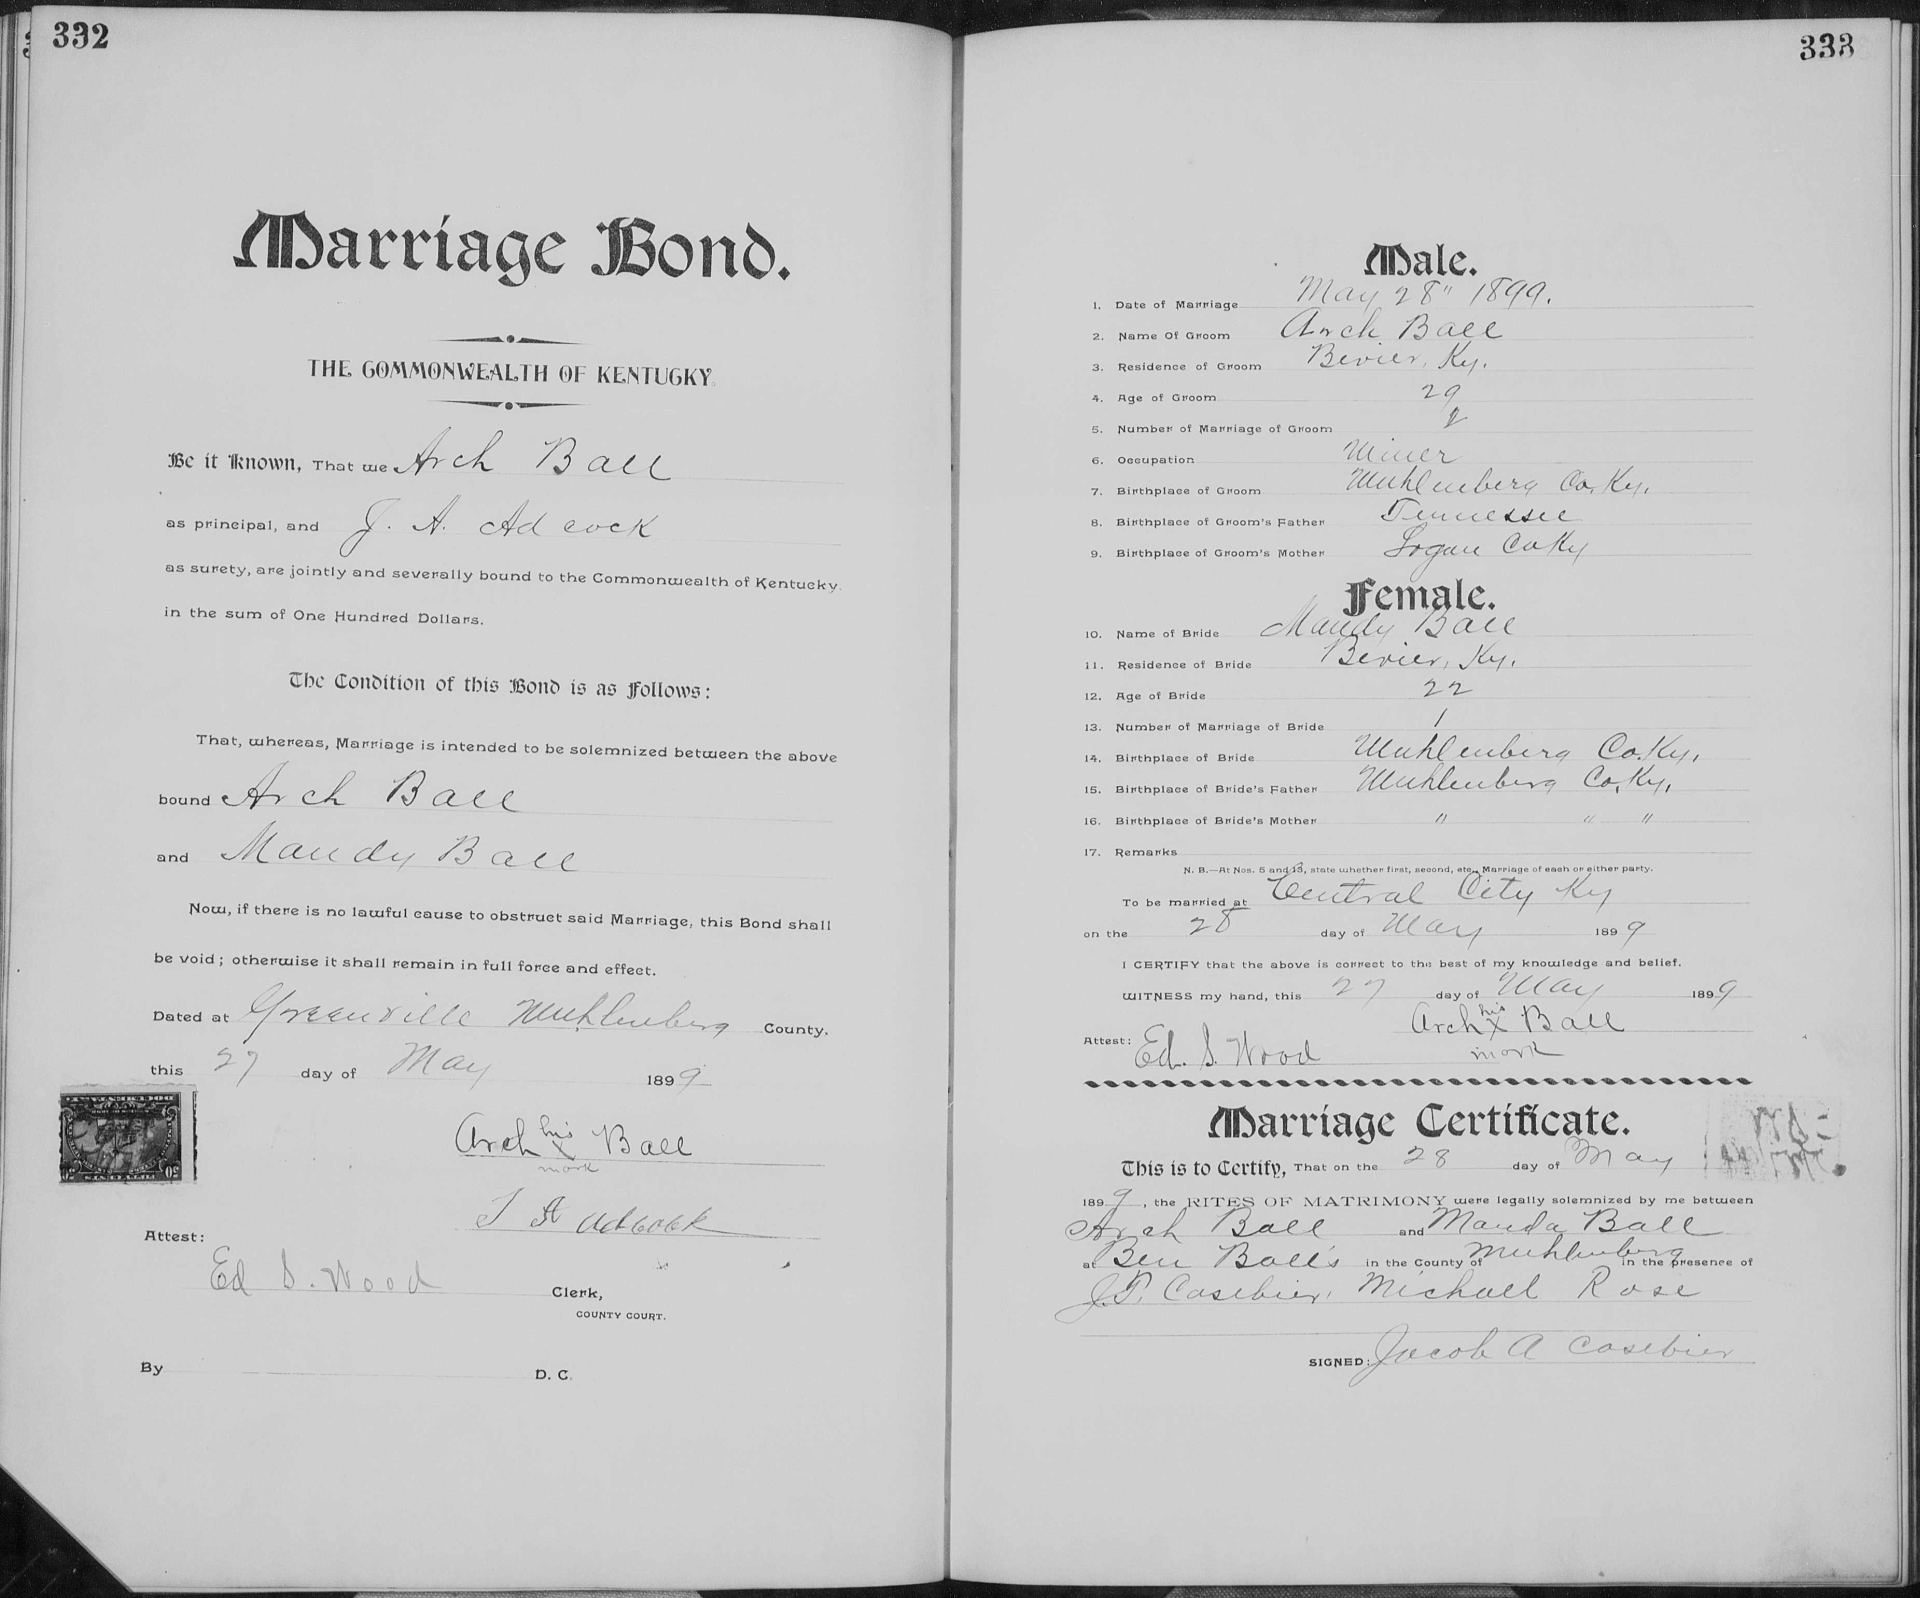 332
Marriage Bond.
THE COMMONWEALTH OF KENTUCKY.
Be it Known, That we Arch Ball
as principal, and J. A. Adcock
as surety, are jointly and severally bound to the Commonwealth of Kentucky,
in the sum of One Hundred Dollars.
The Condition of this Bond is as Follows:
That, whereas, Marriage is intended to be solemnized between the above
bound Arch Ball
and Mandy Ball
Now, if there is no lawful cause to obstruct said Marriage, this Bond shall
be void; otherwise it shall remain in full force and effect.
Dated at Greenville Muhlenberg County.
this 27 day of May 1899
Arch his x mark Ball
J A Adcock
Attest:
Ed S. Wood Clerk,
COUNTY COURT.
By D. C.
DOCUMENTARY
50
333
Male.
1. Date of Marriage May 28" 1899.
2. Name Of Groom Arch Ball
3. Residence of Groom Bevier, Ky.
4. Age of Groom 29
5. Number of Marriage of Groom 2
6. Occupation Miner
7. Birthplace of Groom Muhlenberg Co. Ky.
8. Birthplace of Groom's Father Tennessee
9. Birthplace of Groom's Mother Logan Co Ky
Female.
10. Name of Bride Mandy Ball
11. Residence of Bride Bevier, Ky.
12. Age of Bride 22
13. Number of Marriage of Bride 1
14. Birthplace of Bride Muhlenberg Co. Ky.
15. Birthplace of Bride's Father Muhlenberg Co. Ky.
16. Birthplace of Bride's Mother " " "
17. Remarks
N. B.—At Nos. 5 and 13, state whether first, second, etc., Marriage of each or either party.
To be married at Central City Ky
on the 28 day of May 1899
I CERTIFY that the above is correct to the best of my knowledge and belief.
WITNESS my hand, this 27 day of May 1899
Arch his x mark Ball
Attest: Ed. S. Wood
Marriage Certificate.
This is to Certify, That on the 28 day of May
1899, the RITES OF MATRIMONY were legally solemnized by me between
Arch Ball and Manda Ball
at Ben Ball's in the County of Muhlenberg in the presence of
J. P. Casebier, Michall Rose
SIGNED: Jacob A Casebier